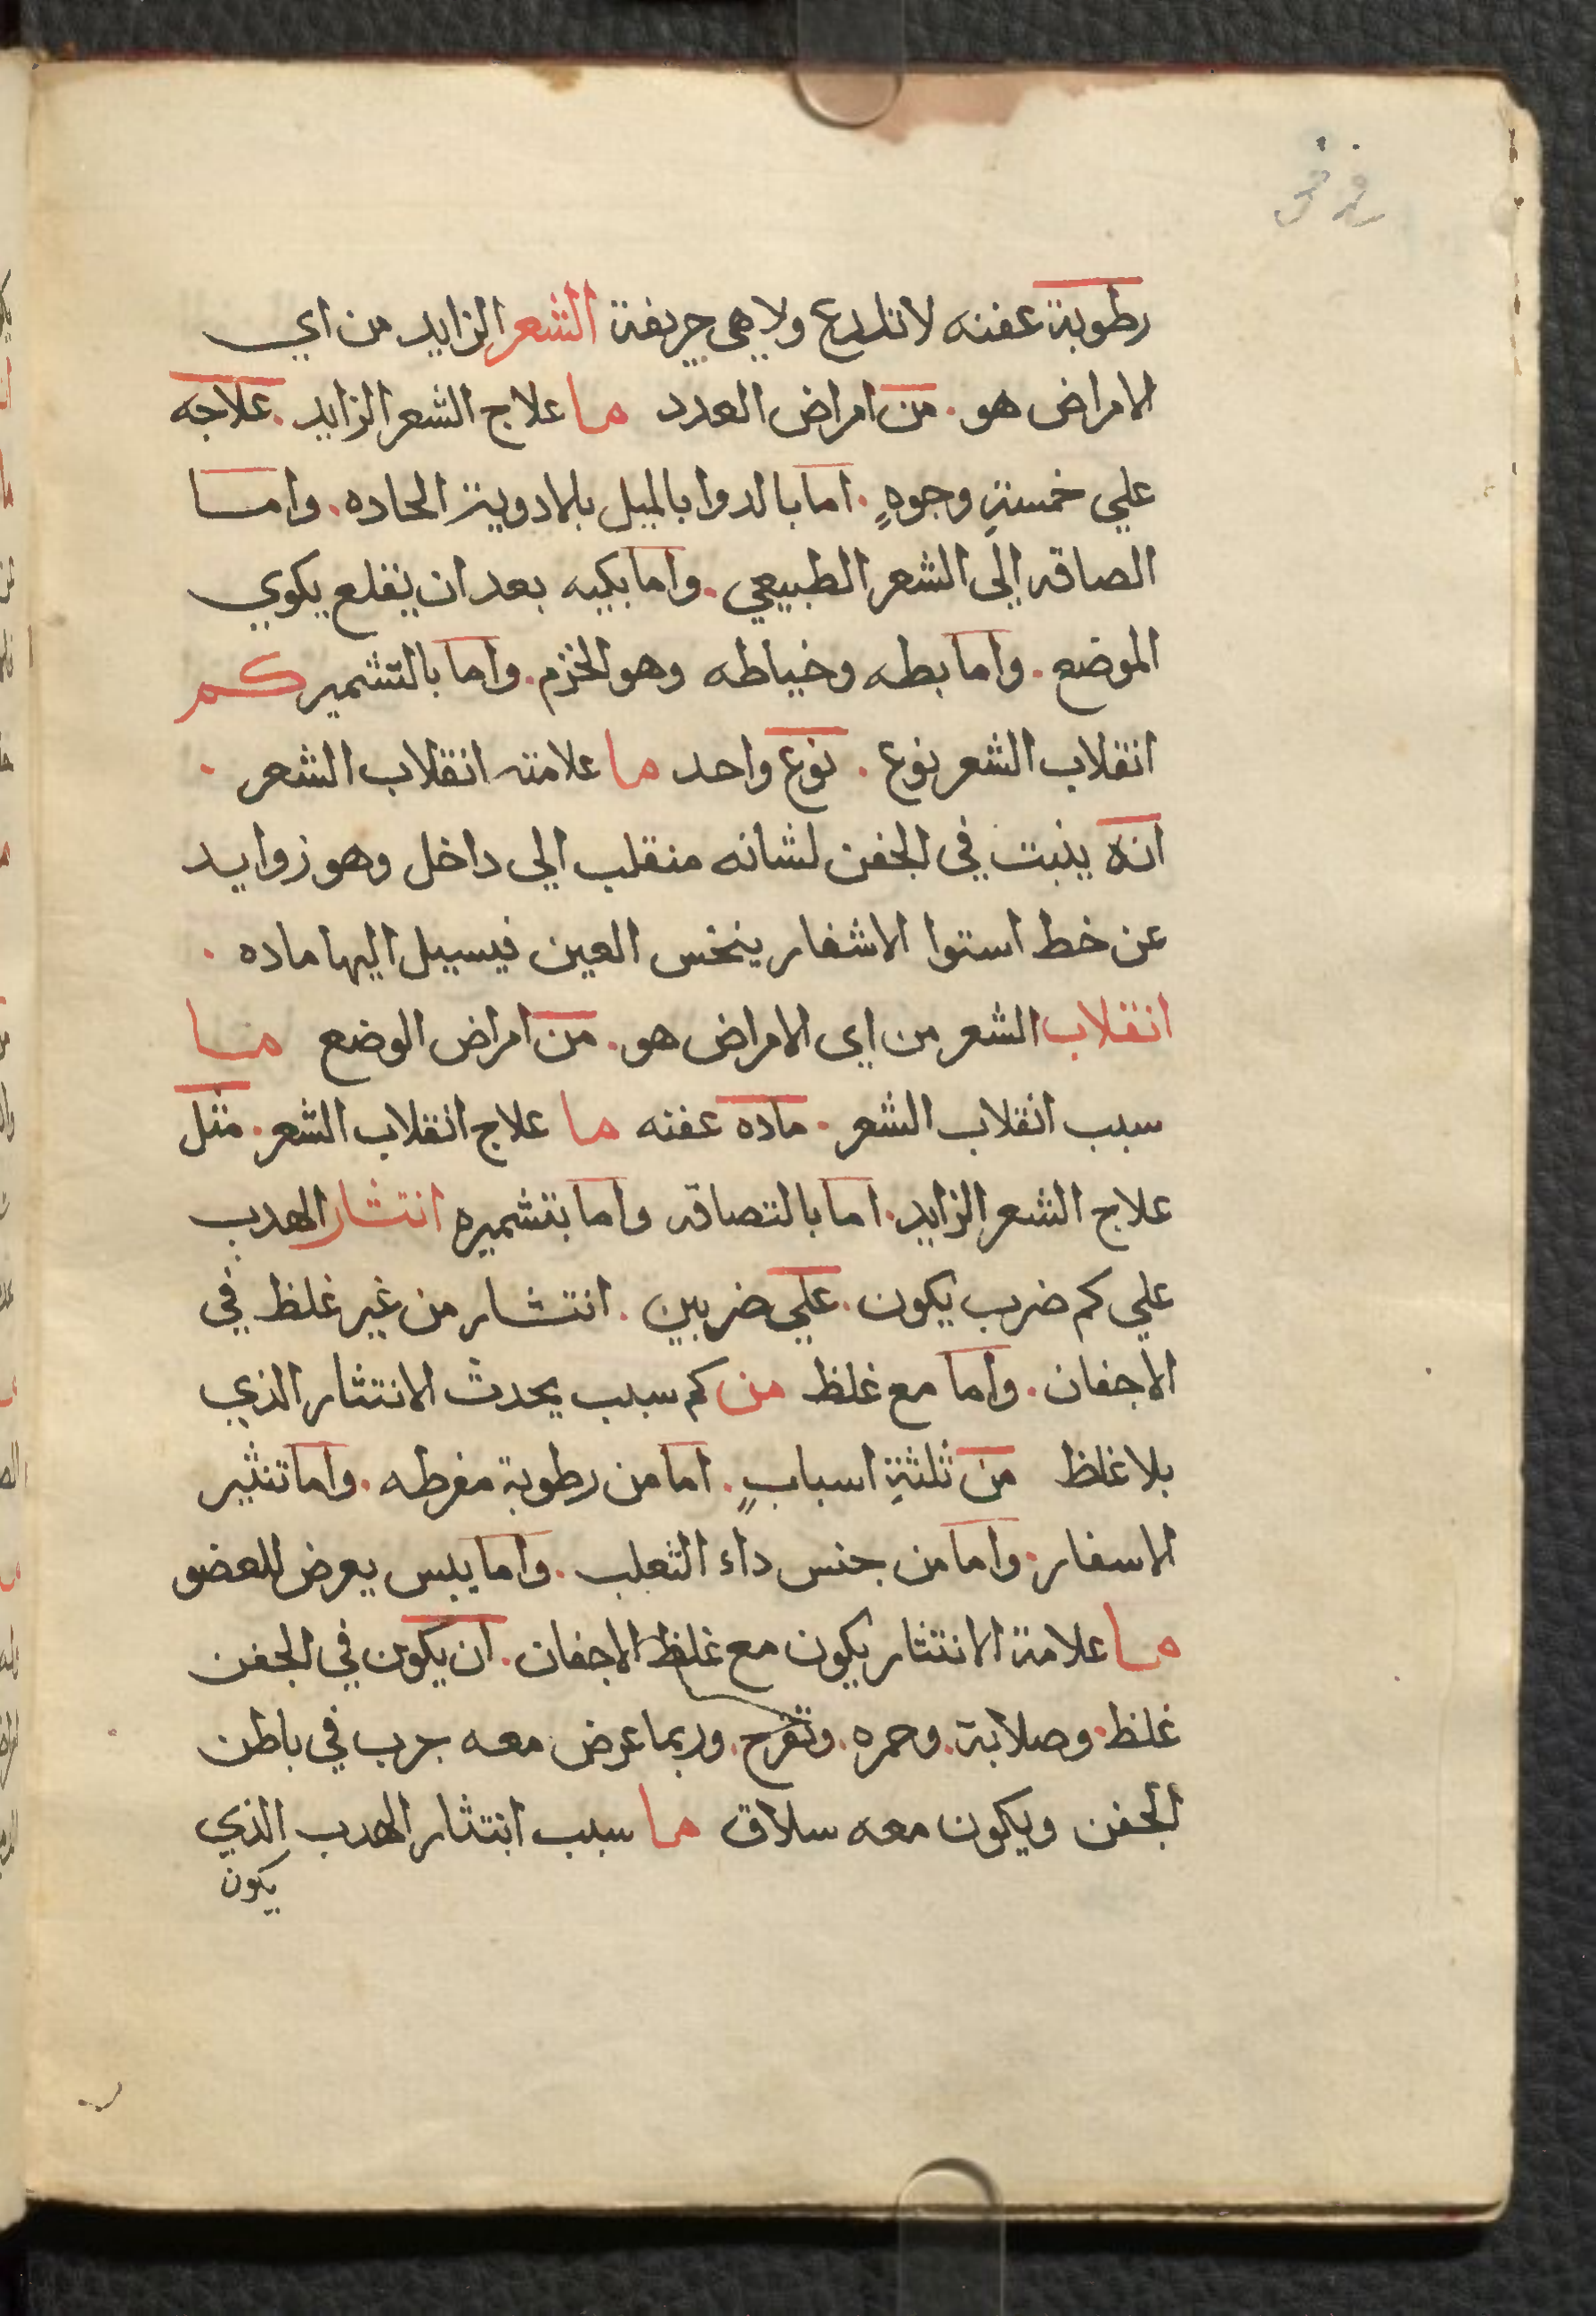 رطوبة عفنه لا تلدع ولا هي حريفة الشعر الزايد من اي
الامراض هو . من امراض العدد ما علاج الشعر الزايد . علاجه
علي خمسةِ وجوهٍ . اما بالدوا بالميل بلادوية الحاده . واما
الصاقه الى الشعر الطبيعي . واما بكيه بعد ان يقلع يكوي
الموضع . واما بطه وخياطه وهو الخزم . واما بالتشمير كم
انقلاب الشعر نوع . نوع واحد ما علامته انقلاب الشعر .
انه ينبت في الجفن لشانه منقلب الي داخل وهو زوايد
عن خط استوا الاشفار ينخس العين فيسيل اليها ماده .
انقلاب الشعر من اي الامراض هو . من امراض الوضع ما
سبب انقلاب الشعر . ماده عفنه ما علاج انقلاب الشعر . مثل
علاج الشعر الزايد . اما بالتصاقه واما بتشميره انتشار الهدب
علي كم ضرب يكون . علي ضربين . انتشار من غير غلظ في
الاجفان . واما مع غلظ من كم سبب يحدث الانتثار الذي
بلا غلظ من ثلثةِ اسبابٍ . اما من رطوبة مفرطه . واما تنثير
الاسفار . واما من جنس داء الثعلب . واما يبس يعرض للعضو
ما علامة الانتثار يكون مع غلظ الاجفان . ان يكون في الجفن
غلظ . وصلابة . وحمره . وتقرح . وربما عرض معه جرب في باطن
الجفن ويكون معه سلاق ما سبب انتثار الهدب الذي
يكون